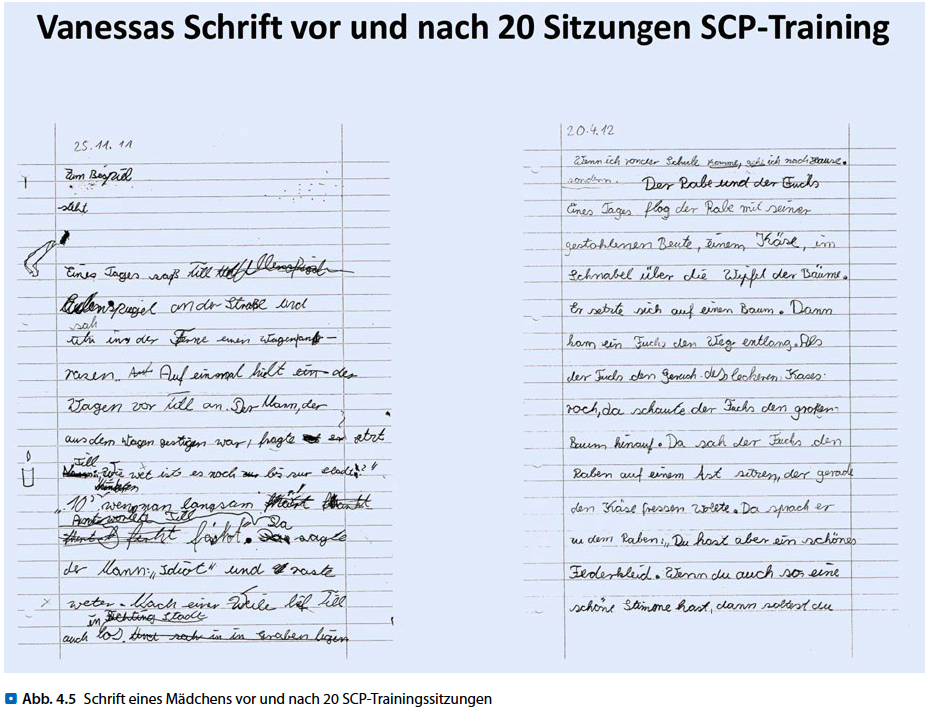 Vanessas Schrift vor und nach 20 Sitzungen SCP-Training
25.11.11
Zum Bespiel
steht
Eines Tages saß Till
Eulenspiegel an der Straße und
sah
in der Ferne einen Wagen
rasen. Auf einmal hielt ein der
Wagen vor Till an. Der Mann, der
aus dem Wagen gestigen war, fragte er
Till
wet ist es noch bis zur
"10 wen man langsam
Till Da
fährt. sagte
der Mann: „Idiot" und raste
weter. Nach einer Weile lif Till
in Richtung Stadt
auch los. in in Graben ligen
20.4.12
Wenn ich von der Schule komme, gehe ich nach Hause.
sondern. Der Rabe und der Fuchs
Eines Tages flog der Rabe mit seiner
gestohlenen Beute, einem Käse, im
Schnabel über die Wipfel der Bäume.
Er setzte sich auf einen Baum. Dann
kam ein Fuchs den Weg entlang. Als
der Fuchs den Geruch des leckeren Käses
roch, da schaute der Fuchs den großen
Baum hinauf. Da sah der Fuchs den
Raben auf einem Ast sitzen, der gerade
den Käse fressen wollte. Da sprach er
zu dem Raben: „Du hast aber ein schönes
Federkleid. Wenn du auch so eine
schöne Stimme hast, dann soltest du
Abb. 4.5 Schrift eines Mädchens vor und nach 20 SCP-Trainingssitzungen